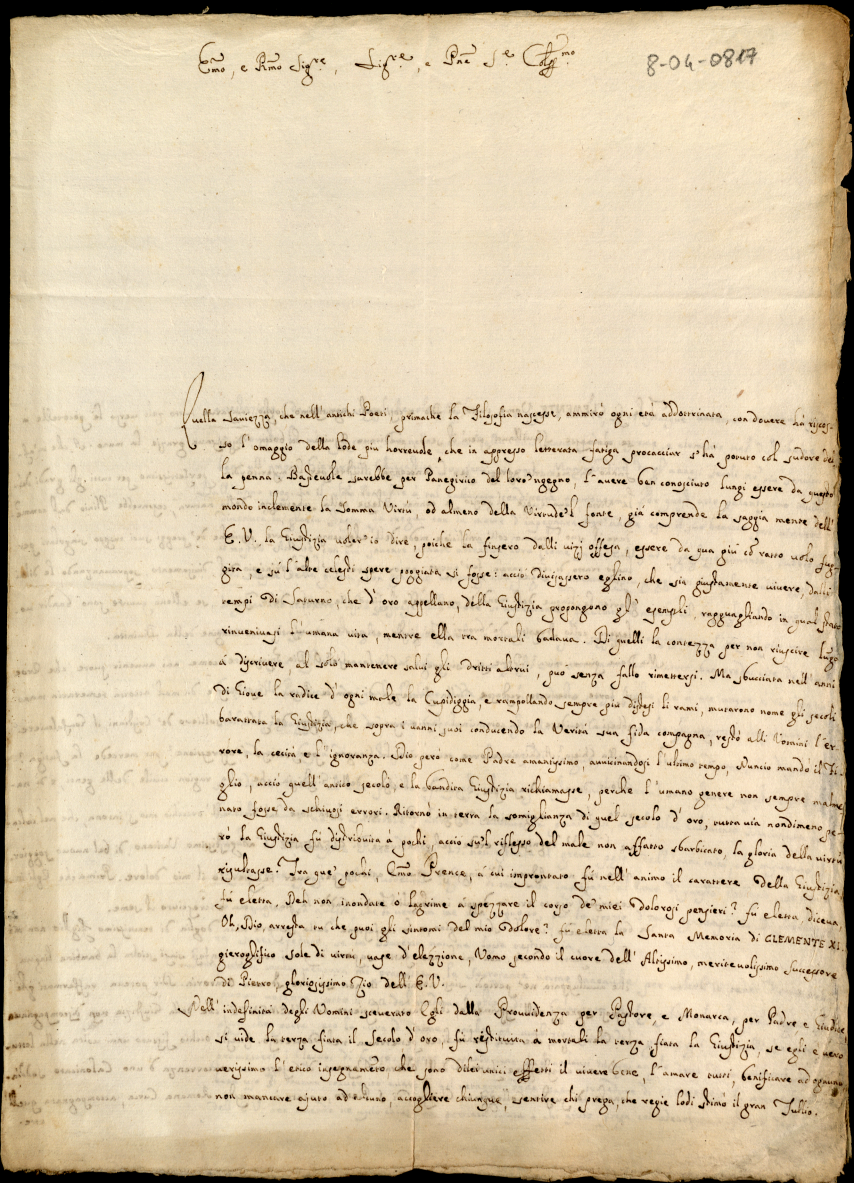 Emo, e Rmo Sigre, Sigre, e Pne Se Colmo
8-04-0817
Quella saviezza, che nell' antichi Poeti, primache la Filosofia nascesse, ammirò ogni età addottrinata, con dovere hà riscos-
so l'omaggio della lode piu horrevole, che in appresso letterata fatiga procacciar s'hà potuto col sudore del-
la penna. Bastevole sarebbe per Panegirico del loro 'ngegno, l'avere ben conosciuto lungi essere da questo
mondo inclemente la somma Virtù, od almeno della Virtude 'l fonte, già comprende la saggia mente dell'
E. V. la Giustizia voler io dire, poiche la finsero dalli vizj offesa, essere da qua giù cō ratto volo fug-
gita, e sù l'alte celesti spere poggiata si fosse: acciò divisassero eglino, che sia giustamente vivere, dalli
tempi di Saturno, che d'oro appellano, della Giustizia propongono gl' esempli, ragguagliando in qual stato
rinvenivasi l'umana vita, mentre ella tra mortali badava. Di quelli la contezza per non riuscire lūgo
à discrivere, al solo mantenere salvi gli dritti altrui, può senza fallo rimettersi. Ma sbucciata nell' anni
di Giove la radice d'ogni male la Cupidiggia, e rampollando sempre più distesi li rami, mutarono nome gli secoli
barattata la Giustizia, che sopra i vanni suoi conducendo la Verità sua fida compagna, restò alli Uomini l'er-
rore, la cecità e l'ignoranza. Dio però come Padre amantissimo, avvicinandosi l'ultimo tempo, Nuncio mandò il Fi-
glio, acciò quell' antico secolo, e la bandita Giustizia richiamasse, perche l'umano genere non sempre malme-
nato fosse da schiusi errori. Ritornò in terra la somiglianza di quel secolo d'oro, tutta via nondimeno pe-
rò la Giustizia fù distribuita à pochi, acciò su 'l riflesso del male non affatto sbarbicato, la gloria della virtù
risultasse. Tra que' pochi, Emo Prence, à cui improntato fù nell' animo il carattere della Giustizia,
fù eletta, Deh non inondate ò lagrime à spezzare il corso de' miei dolorosi pensieri? fù eletta diceva,
Oh, Dio, arresta tu che puoi gli sintomi del mio dolore? fù eletta la Santa Memoria di CLEMENTE XI.
gieroglifico sole di virtù, vase d'elezzione, Uomo secondo il cuore dell' Altissimo, meritevolissimo successore
di Pietro, gloriosissimo Zio dell' E. V.
Nell' indefinità degli Uomini sceverato Egli dalla Provvidenza per Pastore, e Monarca, per Padre e Giudice,
si vide la terza fiata il secolo d'oro, fù restituita à mortali la terza fiata la Giustizia, se egli è vero
verissimo l'etico insegnamēto, che sono di lei unici effetti il vivere bene, l'amare tutti, benificare ad ognuno,
non mancare ajuto ad alcuno, accogliere chiunque, sentire chi prega, che regie lodi stimò il gran Tullio.